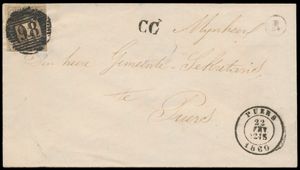 98
CC
Mynheer
Den heere Gemeente-Sekretaris
te
Puers
PUERS
22
1860